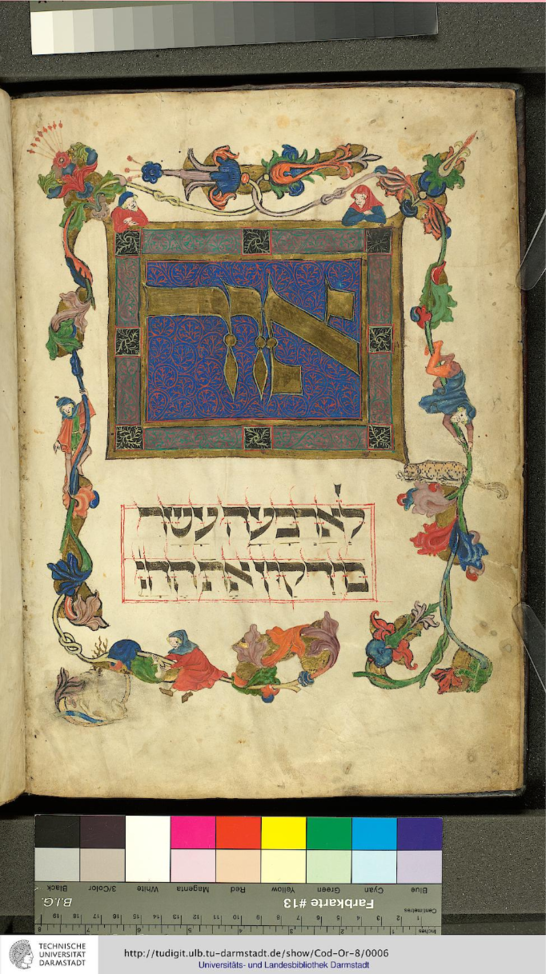 אור
לארבעה עשר
בודקין את החמץ
Blue Cyan Green Yellow Red Magenta White 3/Color Black
Farbkarte #13 B.I.G.
Centimetres
1 2 3 4 5 6 7 8 9 10 11 12 13 14 15 16 17 18 19
Inches
TECHNISCHE
UNIVERSITÄT
DARMSTADT
http://tudigit.ulb.tu-darmstadt.de/show/Cod-Or-8/0006
Universitäts- und Landesbibliothek Darmstadt